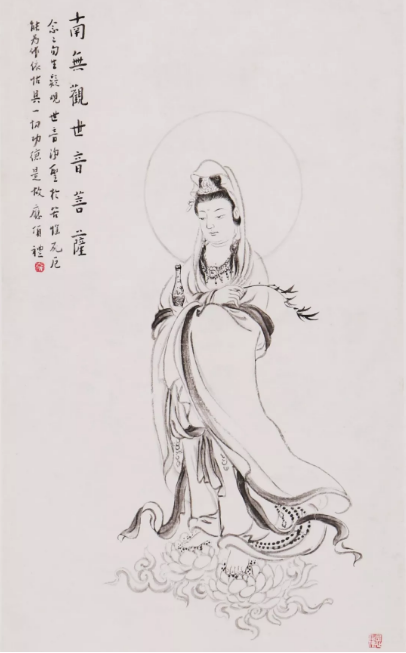 南無觀世音菩薩
念々勿生疑觀世音淨聖於苦惱死厄
能為作依怙具一切功德是故應頂禮